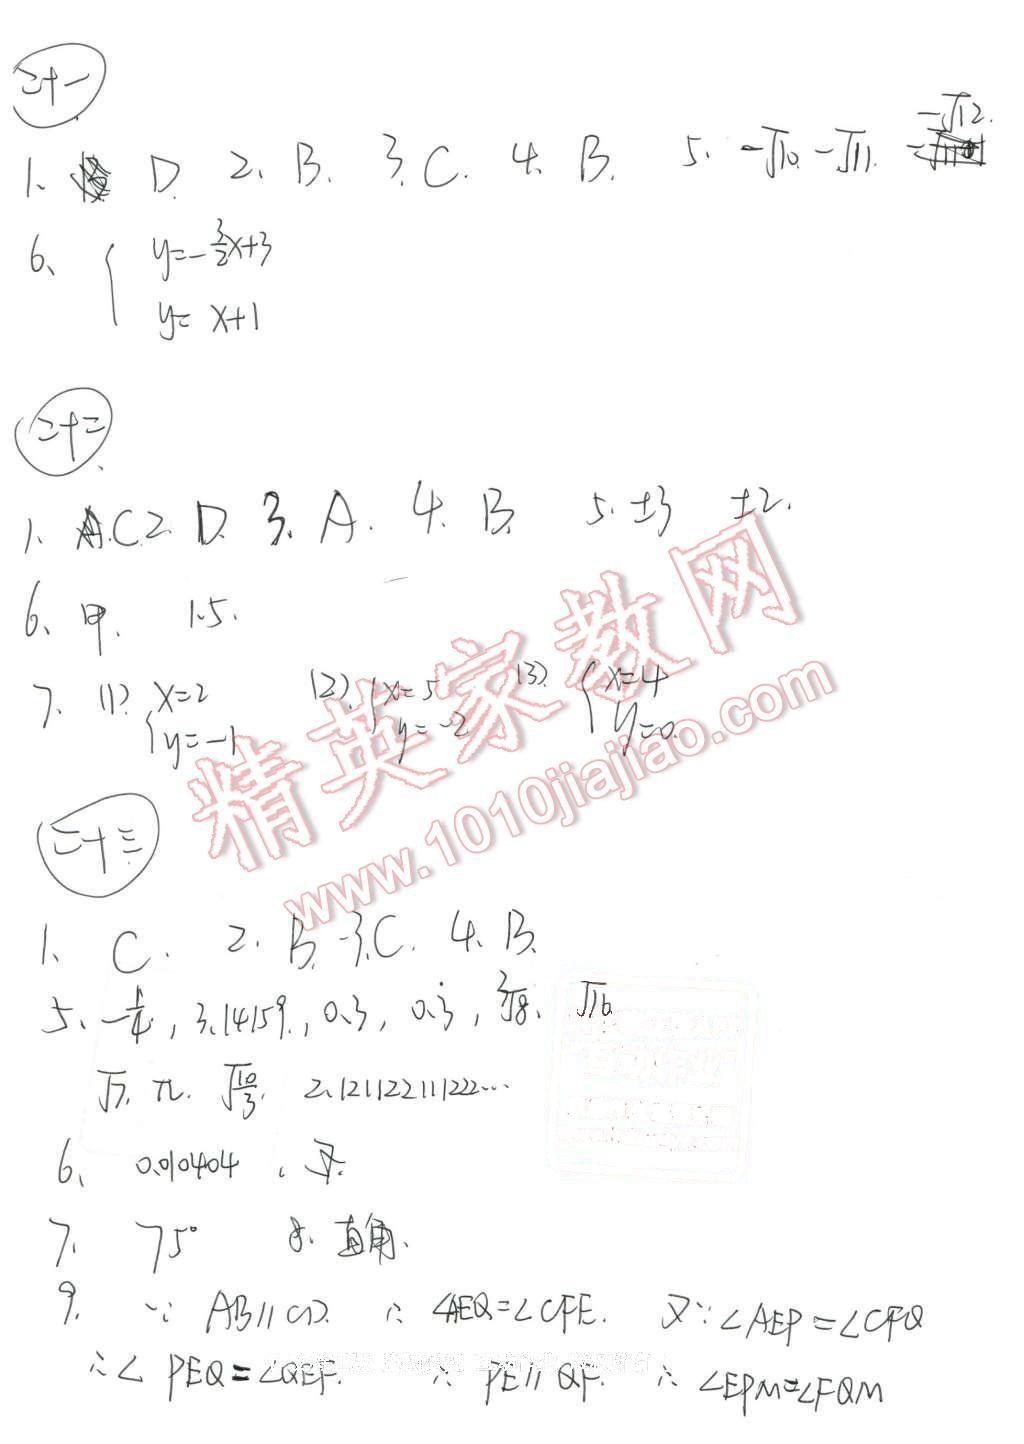 二十一
1、D. 2、B. 3、C. 4、B. 5、-√10 -√11. -√12.
6、{ y=-3/2x+3
y= x+1
二十二
1、C 2、D. 3、A. 4、B. 5、±3 ±2.
6、甲. 1.5.
7、(1) { x=2 (2) { x=5 (3) { x=4
y=-1 y=-2 y=0.
精英家教网
www.1010jiajiao.com
二十三
1、C. 2、B. 3、C. 4、B.
5、-1/4, 3.14159, 0.3, 0.3̇, ³√8、 √16
√7、π、√(10/3)、 2.121122111222…
6、0.010404 、
7、75° 8、直角、
9、∵ AB∥CD. ∴ ∠AEQ=∠CFE. 又∵∠AEP=∠CFQ
∴∠PEQ=∠QEF. ∴ PE∥QF. ∴ ∠EPM=∠FQM